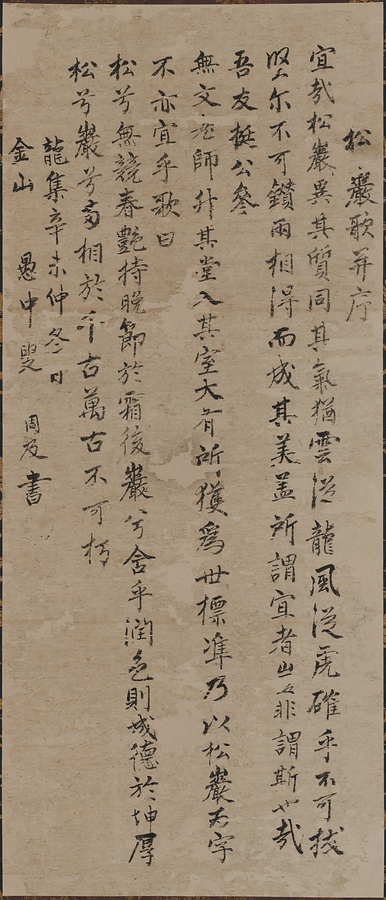 松巖歌并序
宜哉松巖異其質同其氣猶雲從龍風從虎確乎不可拔
堅尓不可鑽兩相得而成其美蓋所謂宜者豈非謂斯也哉
吾友挺公參
無文老師升其堂入其室大有所獲為世標準乃以松巖為字
不亦宜乎歌曰
松兮無競春艷持晚節於霜後巖兮含乎潤色則城德於坤厚
松兮巖兮相於千古萬古不可朽
龍集辛未仲冬日
金山 愚中叟 周及書